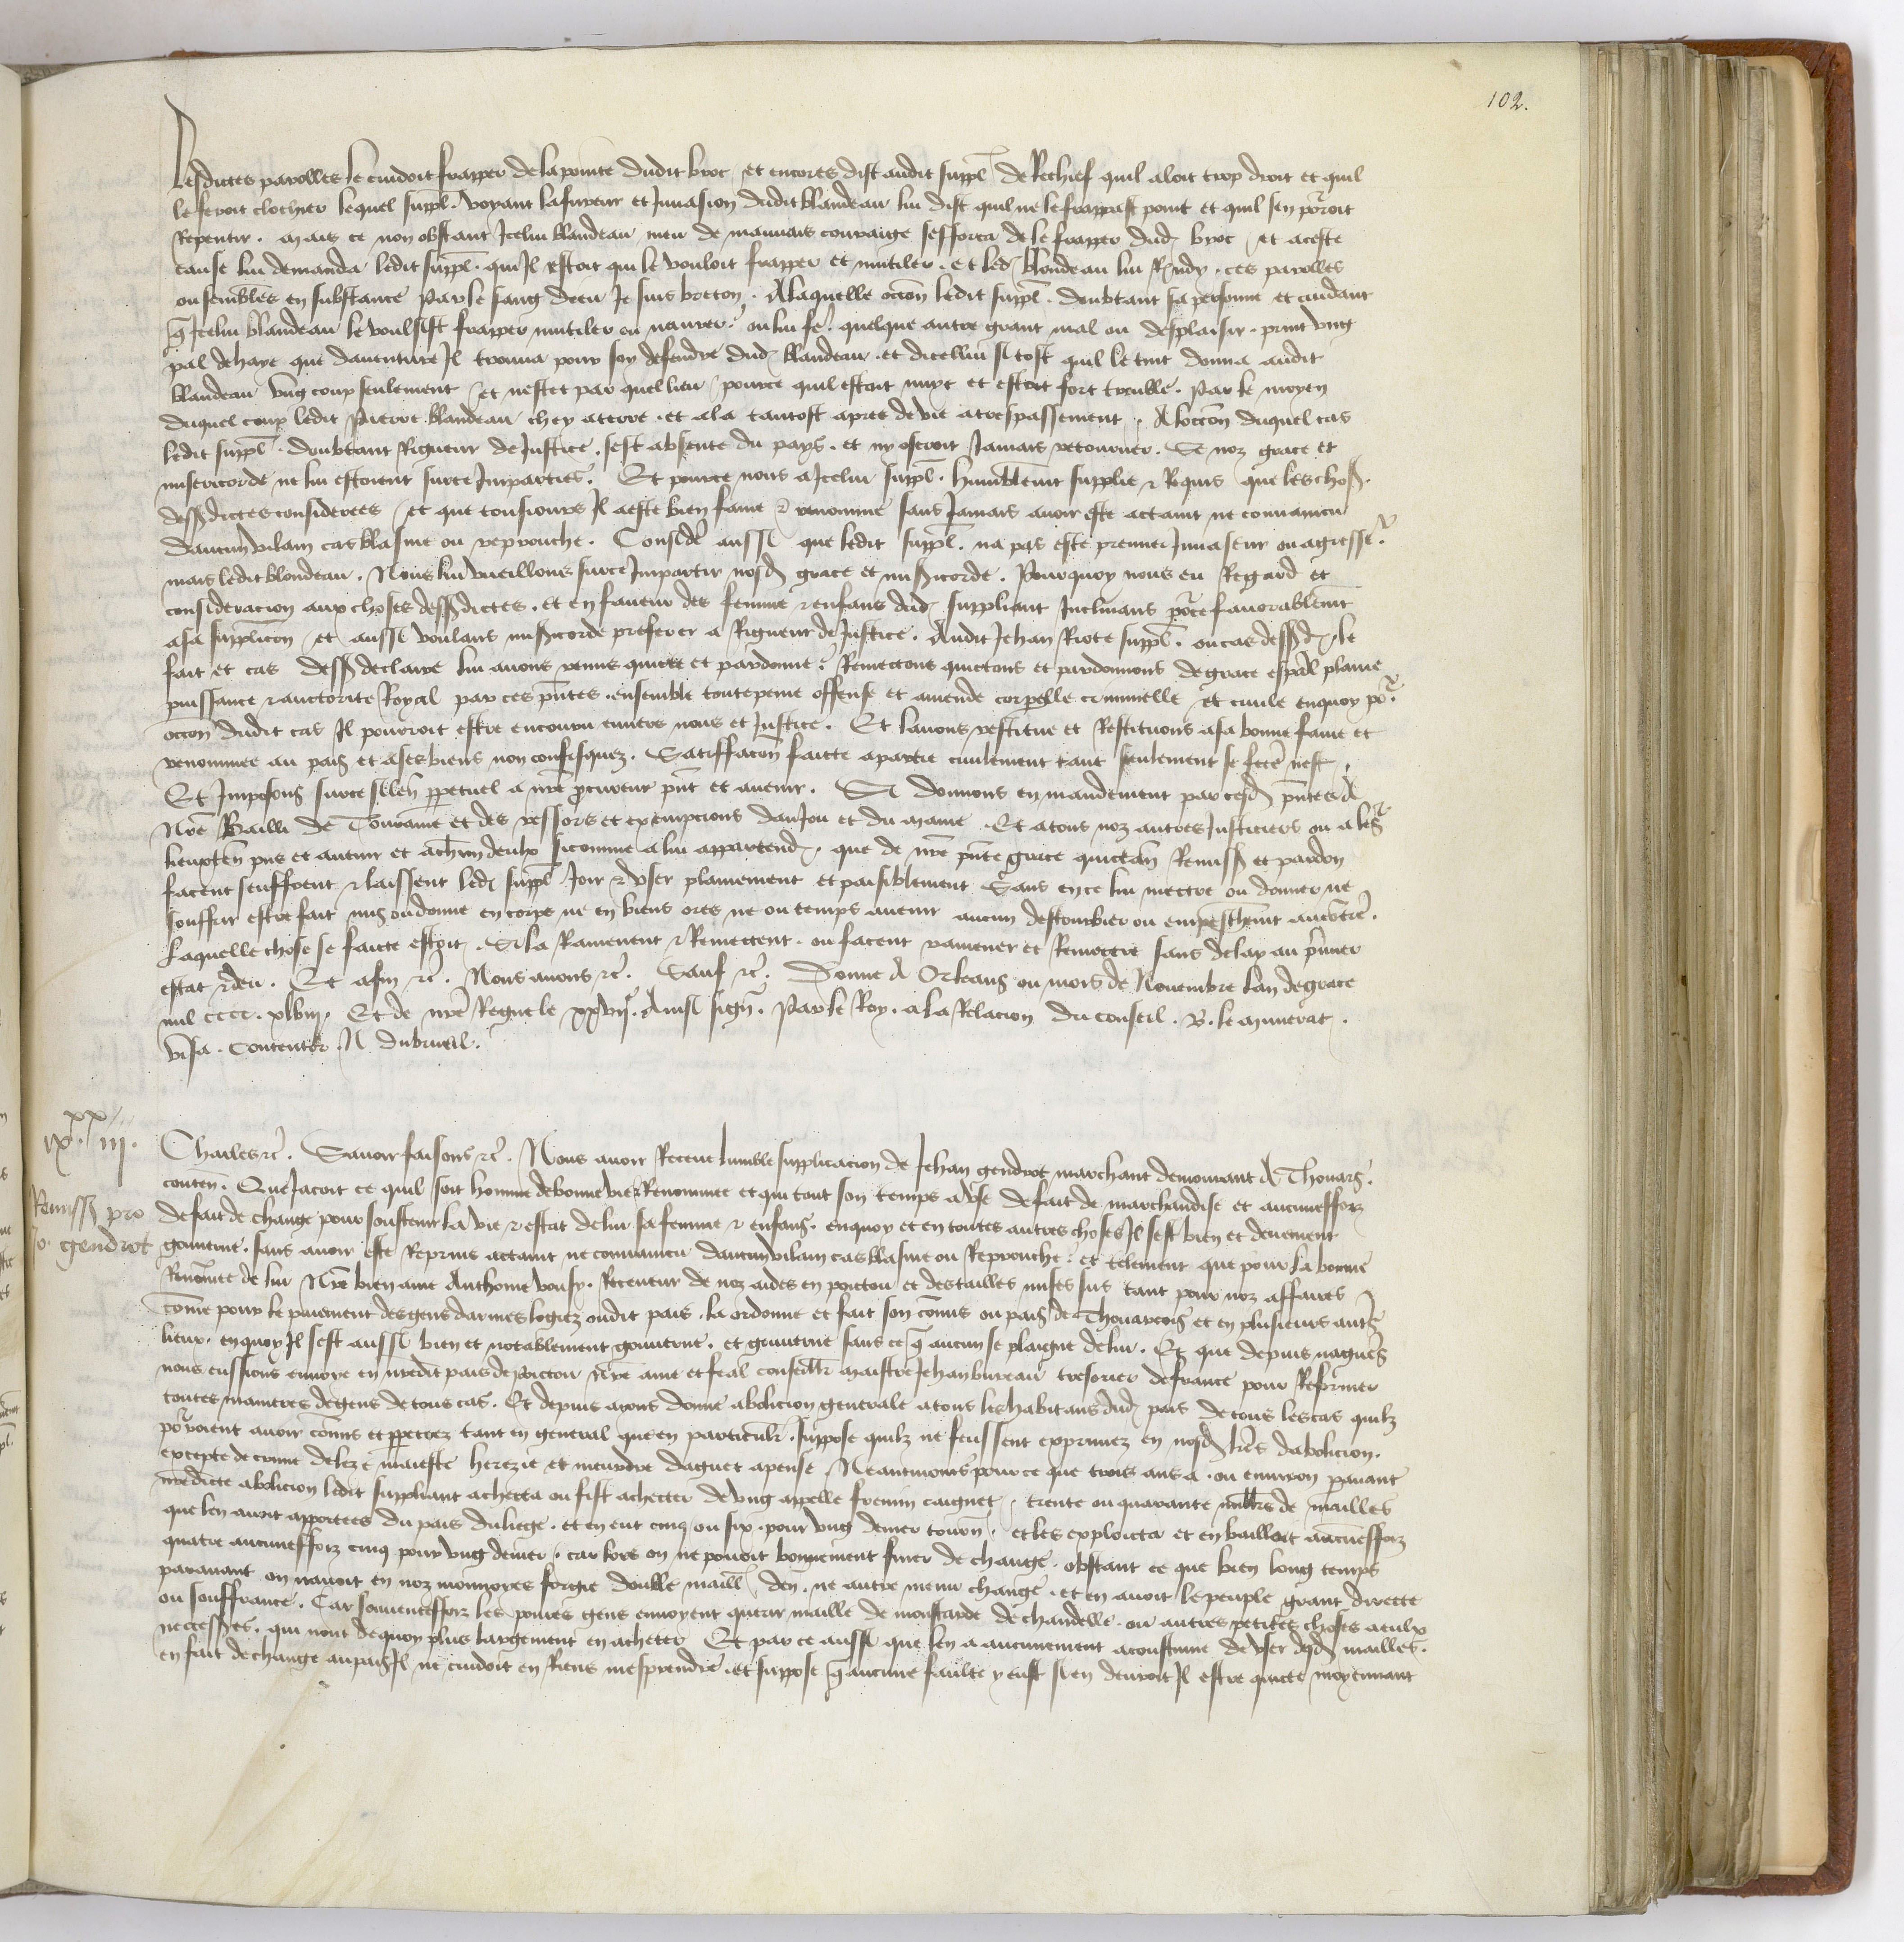 102.
Lesdictes parolles le cuidoit frapper de la pointe dudit broc et encores dist audit suppl de Rechief quil aloit trop droit et quil
le feroit clochier lequel suppl. voyant la fureur et Invasion dudit blandeau lui dist quil ne le frappast point et quil sen porroit
Repentir. mais ce non obstant Icelui blandeau meu de mauvais couraige sefforca de le frapper dud broc et a ceste
cause lui demanda ledit suppl. qui Il estoit qui le vouloit frapper et mutiler. et led blondeau lui Rndy. ces parolles
ou semblés en substance Par le sang dieu Je suis breton. A laquelle occon ledit suppl. doubtant sa personne et cuidant
q Icelui blandeau le voulsist frapper mutiler ou navrer. ou lui fe. quelque autre grant mal ou desplaisir. print ung
pal de haye que daventure Il trouva pour soy defendre dud blandeau. et dicellui si tost quil le tint donna audit
blandeau ung coup seulement et ne scet par quel lieu pource quil estoit nuyt et estoit fort trouble. Par le moyen
duquel coup ledit Pierre blandeau chey a terre. et ala tantost apres de vie a trespassement. A loccon duquel cas
ledit suppl. doubtant Rigueur de Justice. sest absente du pays. et ny oseroit Jamais retourner. Se noz grace et
misericorde ne lui estoient surce Imparties. Et pource nous a Icelui suppl. humblemt supplie & Requis que les chos.
dess dictes considerees et que tousiours Il a este bien fame & renomme sans Jamais avoir este actaint ne convaincu
daucun vilain cas blasme ou reprouche. Consider aussi que ledit suppl. na pas este premier Invaseur ou agresse.
mais ledit blondeau. Nous lui vueillons surce Impartir nosd grace et misicorde. Pourquoy nous eu Regard et
consideracion aux choses dessdictes. et en faveur des femme & enfans dud suppliant Inclinans pource favorablemt
a sa supplicon et aussi voulans misicorde preferer a Rigueur de Justice. Audit Jehan Riote suppl. ou cas dessd le
fait et cas dess declaire lui avons remis quicte et pardonne. Remectons quictons et pardonnons de grace espal plaine
puissance & auctorite Royal par ces pntes. ensemble toute peine offense et amende corpelle criminelle et civile en quoy po.
occon dudit cas Il pourroit estre encouru envers nous et Justice. Et lavons restitue et Restituons a sa bonne fame et
renommee au pais et a ses biens non confisquez. Satisfacon faicte a partie civilement tant seulement se fcte nest.
Et Imposons surce silen ppetuel a nre procureur pnt et avenir. Si donnons en mandement par cesd pntes A
Nre Bailli de Touraine et des ressors et exempcions danJou et du maine. Et a tous noz autres Justiciers ou a leꝰ
lieuxten pns et avenir et a chun deulx sicomme a lui appartend. que de nre pnte grace quictan Remiss et pardon
facent seuffrent & laissent led suppl Joir & user plainement et paisiblement Sans en ce lui mectre ou donner ne
souffrir estre fait mis ou donne en corps ne en biens ores ne ou temps avenir aucun destourbier ou empeschemt au contre.
Laquelle chose se faicte estoit. Si la Ramenent & Remectent. ou facent ramener et Remectre sans delay au prmier
estat & deu. Et afin &c. Nous avons &c. Sauf &c. Donne A Orleans ou mois de Novembre Lan de grace
mil cccc. xlviij. Et de nre Regne le xxvije. Ainsi sign. Par le Roy. a la Relacion du conseil. B. le munerat.
visa. Contentor. N. dubrueil.
xx
ix iij.
Remiss pro
Jo. gendrot
Charles &c. Savoir faisons &c. Nous avoir Receue lumble supplicacion de Jehan gendrot marchant demourant A Thouars.
conten. Que Jacoit ce quil soit homme de bonne vie & Renommee et qui tout son temps a use de fait de marchandise et aucuneffoiz
de fait de change pour soustenir la vie & estat de lui sa femme & enfans. en quoy et en toutes autres choses Il sest bien et deuement
gouverne. sans avoir este Reprins actaint ne convaincu daucun vilain cas blasme ou Reprouche. et telement que pour la bonne
Renommee de lui Nre bien ame Anthoine vousy. Receveur de noz aides en poictou et des tailles mises sus tant pour noz affaires
comme pour le paiement des gens darmes logiez oudit pais. la ordonne et fait son comis ou pais de Thouarcois et en plusieurs aut
lieux. en quoy Il sest aussi bien et notablement gouverne. et gouverne sans ce q aucun se plaigne de lui. Et que depuis nagueres
nous eussions envoye en nredit pais de poictou Nre ame et feal conseillr maistre Jehan bureau tresorier de france pour Refformer
toutes manieres de gens de tous cas. Et depuis ayons donne abolicion generale a tous les habitans dud pais de tous les cas quilz
porroient avoir comis et ppetrez tant en general que en particulr. suppose quilz ne feussent exprimez en nosd lres dabolicion.
excepte de crime de leze maieste herezie et meurdre daguet apense Neantmoins pour ce que trois ans a. ou environ paravant
nredicte abolicion ledit suppliant achecta ou fist achecter de ung appelle fremin caignet. trente ou quarante milliers de mailles
que len avoit apportees du pais du liege. et en eut cinq ou six. pour ung denier tourn. et les exploicta et en bailloit aucuneffoiz
quatre aucuneffoiz cinq pour ung denier. car lors on ne povoit bonnement finer de change. obstant ce que bien long temps
paravant on navoit en noz monnoyes forgie double maill den. ne autre menu change. et en avoit le peuple grant disecte
ou souffrance. Car souventeffoiz les povres gens envoyent querir maille de moustarde de chandelle. ou autres petites choses a eulx
necesses. qui nont de quoy plus largement en acheter Et par ce aussi que len a aucunement acoustume de user desd mailles.
en fait de change au pais Il ne cuidoit en Riens mesprendre. et suppose q aucune faulte y eust si en devroit Il estre quicte moyennant